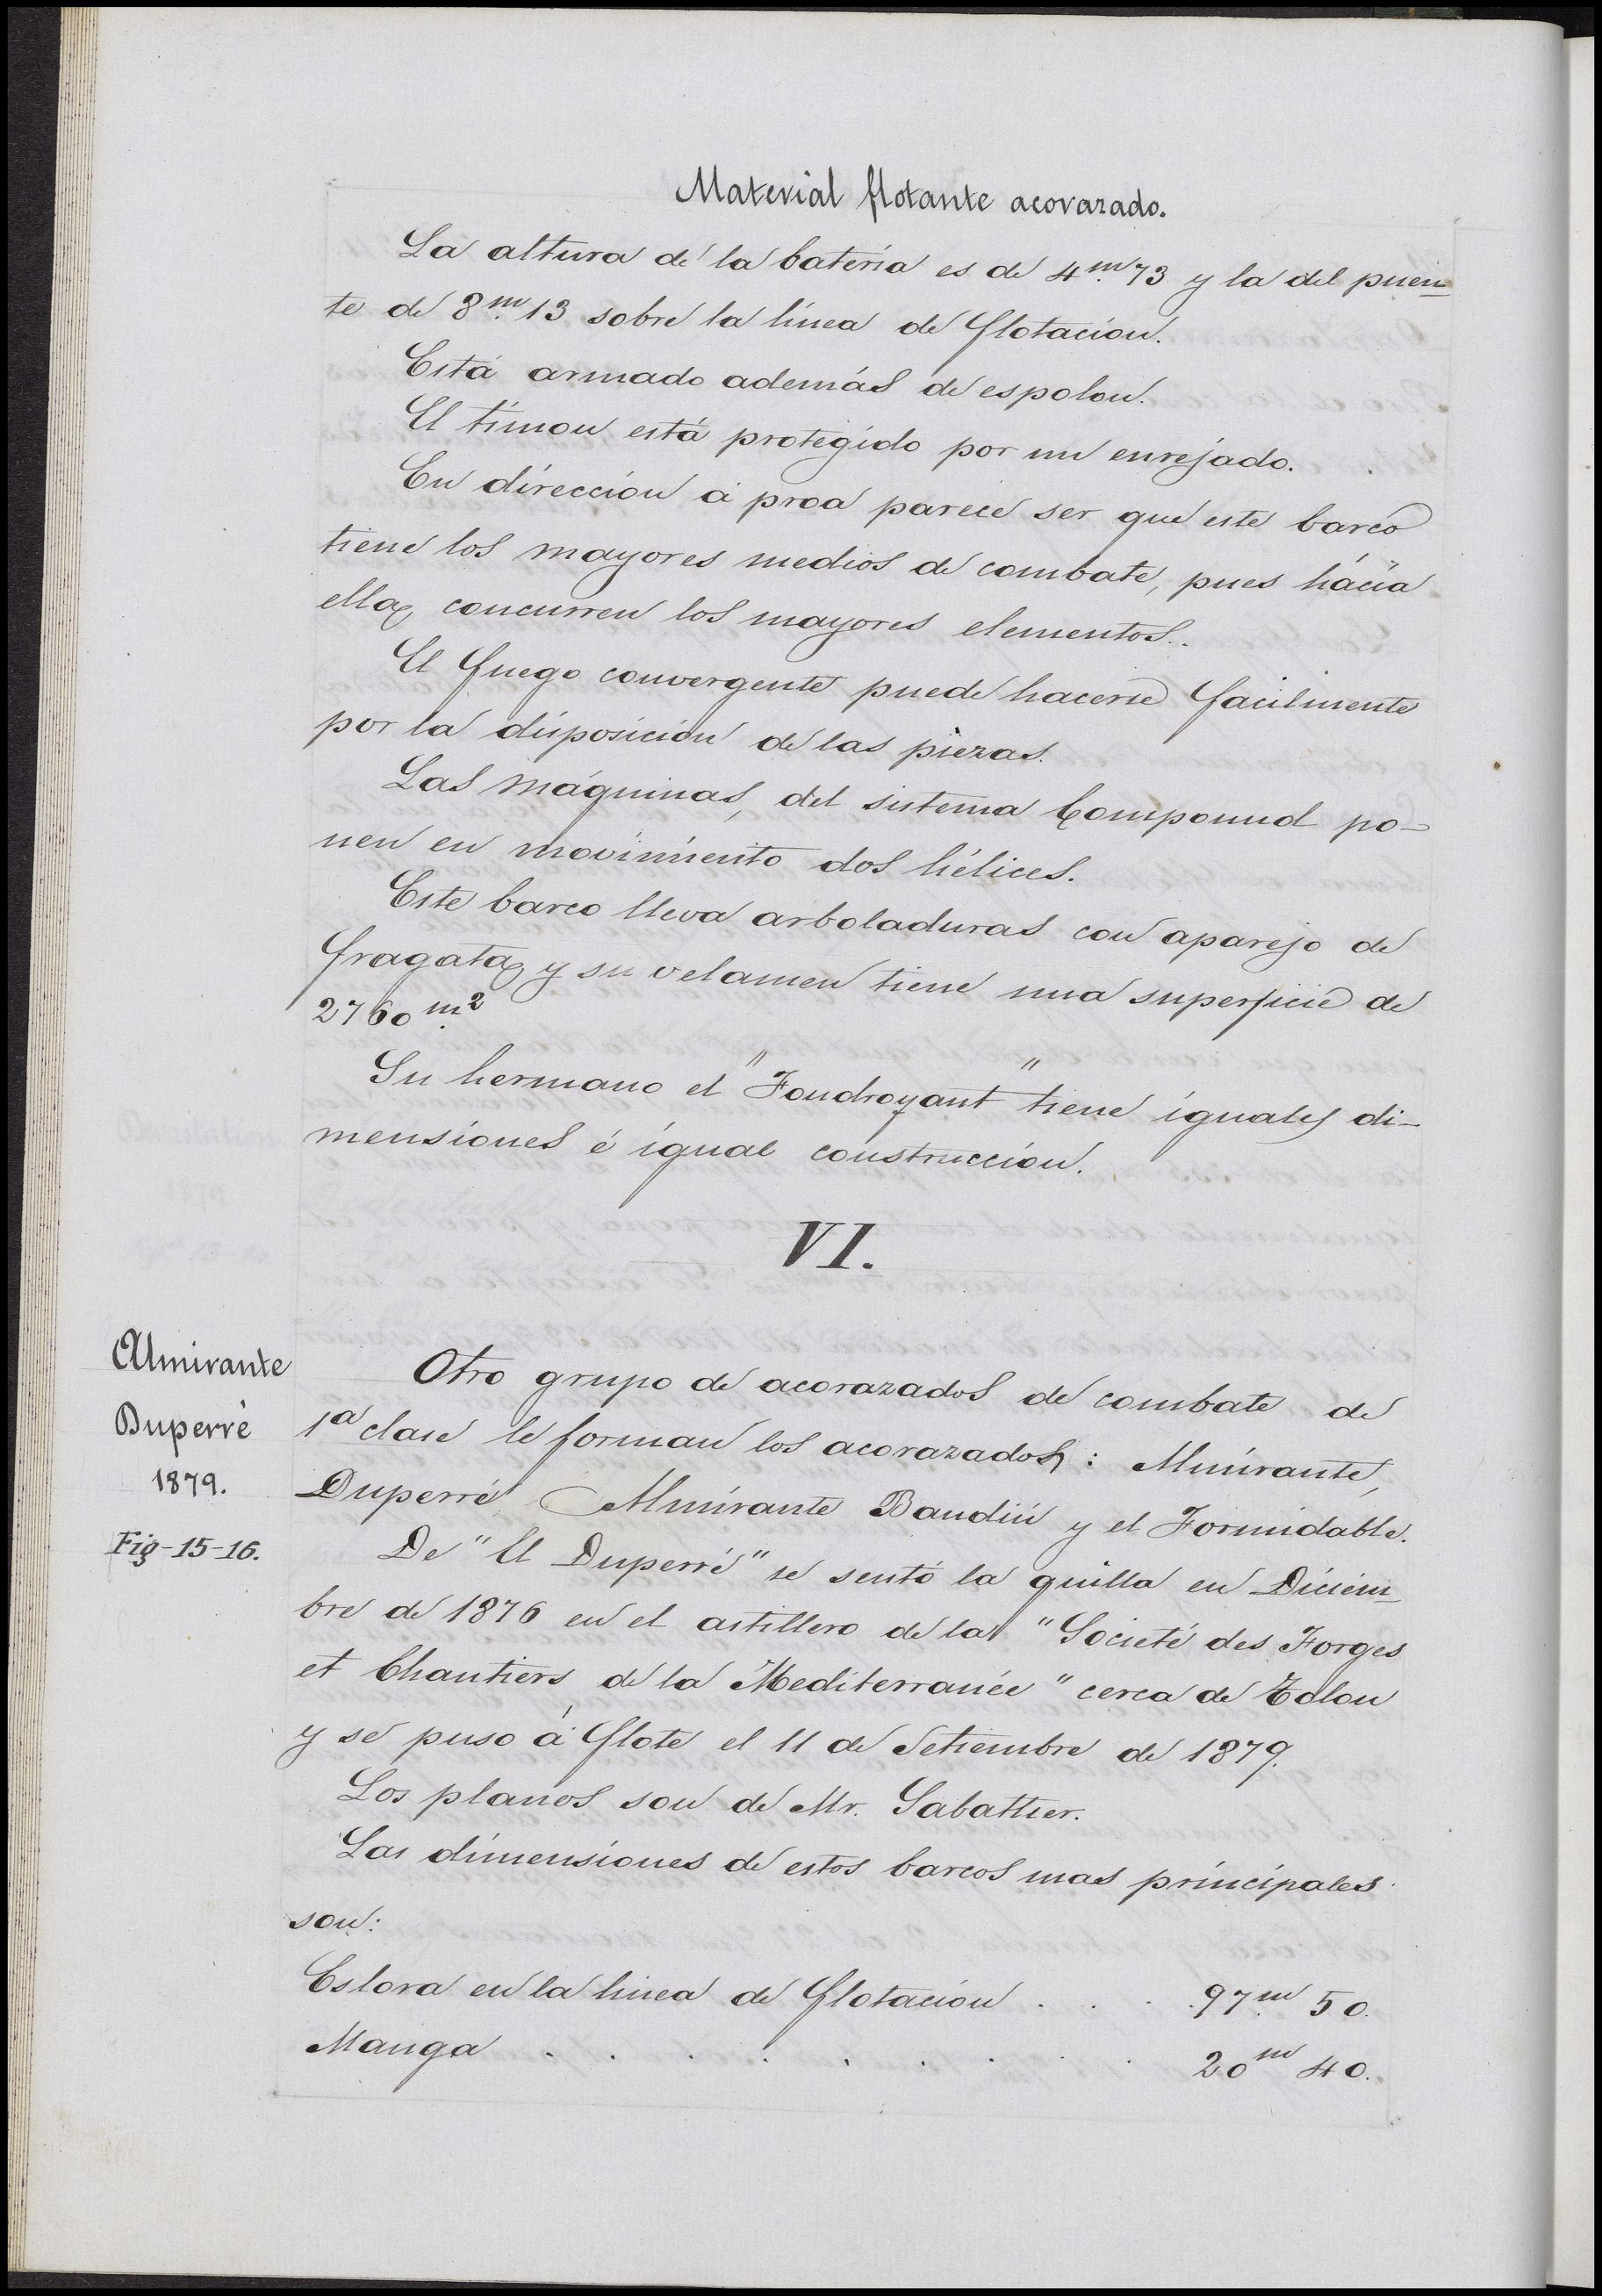 Material flotante acorazado.
La altura de la batería es de 4.m 73 y la del puen
te de 8.m 13 sobre la línea de flotación.
Está armado además de espolon.
El timon está protegido por un enrejado.
En dirección á proa parece ser que este barco
tiene los mayores medios de combate, pues hácia
ella, concurren los mayores elementos.
El fuego convergente puede hacerse facilmente
por la disposición de las piezas.
Las máquinas, del sistema Compound po-
nen en movimiento dos hélices.
Este barco lleva arboladuras con aparejo de
fragata, y su velamen tiene una superficie de
2760 m.2
Su hermano el "Foudroyant" tiene iguales di-
mensiones é igual construcción.
VI.
Almirante
Duperré
1879.
Fig-15-16.
Otro grupo de acorazados de combate de
1a clase le forman los acorazados: Almirante,
Duperré, Almirante Baudin y el Formidable.
De "El Duperré" se sentó la quilla en Diciem
bre de 1876 en el astillero de la "Societé des Forges
et Chantiers de la Mediterranée" cerca de Tolon
y se puso á flote el 11 de Setiembre de 1879.
Los planos son de Mr. Sabattier.
Las dimensiones de estos barcos mas principales
son:
Eslora en la linea de flotación . . . 97.m 50.
Manga . . . . . . . . . 20m 40.